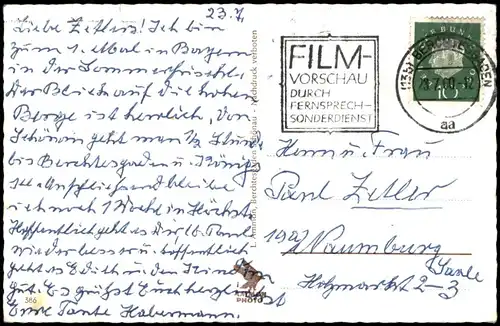 23.7.
Liebe Zetlers! Ich bin
zum 1. Mal in Bayern
in der Sommerfrische.
Der Blick auf die hohen
Berge ist herrlich, von
Schönau geht man 1/2 Stunde
bis Berchtesgaden u. Königs
see. Anschließend bleibe
ich noch 1 Woche in Höchst.
Hoffentlich geht es Dir lb. Paul
wieder besser u. hoffentlich
geht es Edith u. den Kindern
gut. Es grüßt Euch herzlichst
Eure Tante Habermann.
386
L. Ammon, Berchtesgaden Schönau · Nachdruck verboten
AMMON
PHOTO
FILM-
VORSCHAU
DURCH
FERNSPRECH-
SONDERDIENST
(13b) BERCHTESGADEN
aa
10
Herrn u. Frau
Paul Zetler
(19a) Naumburg
Saale
Holzmarkt 2-3